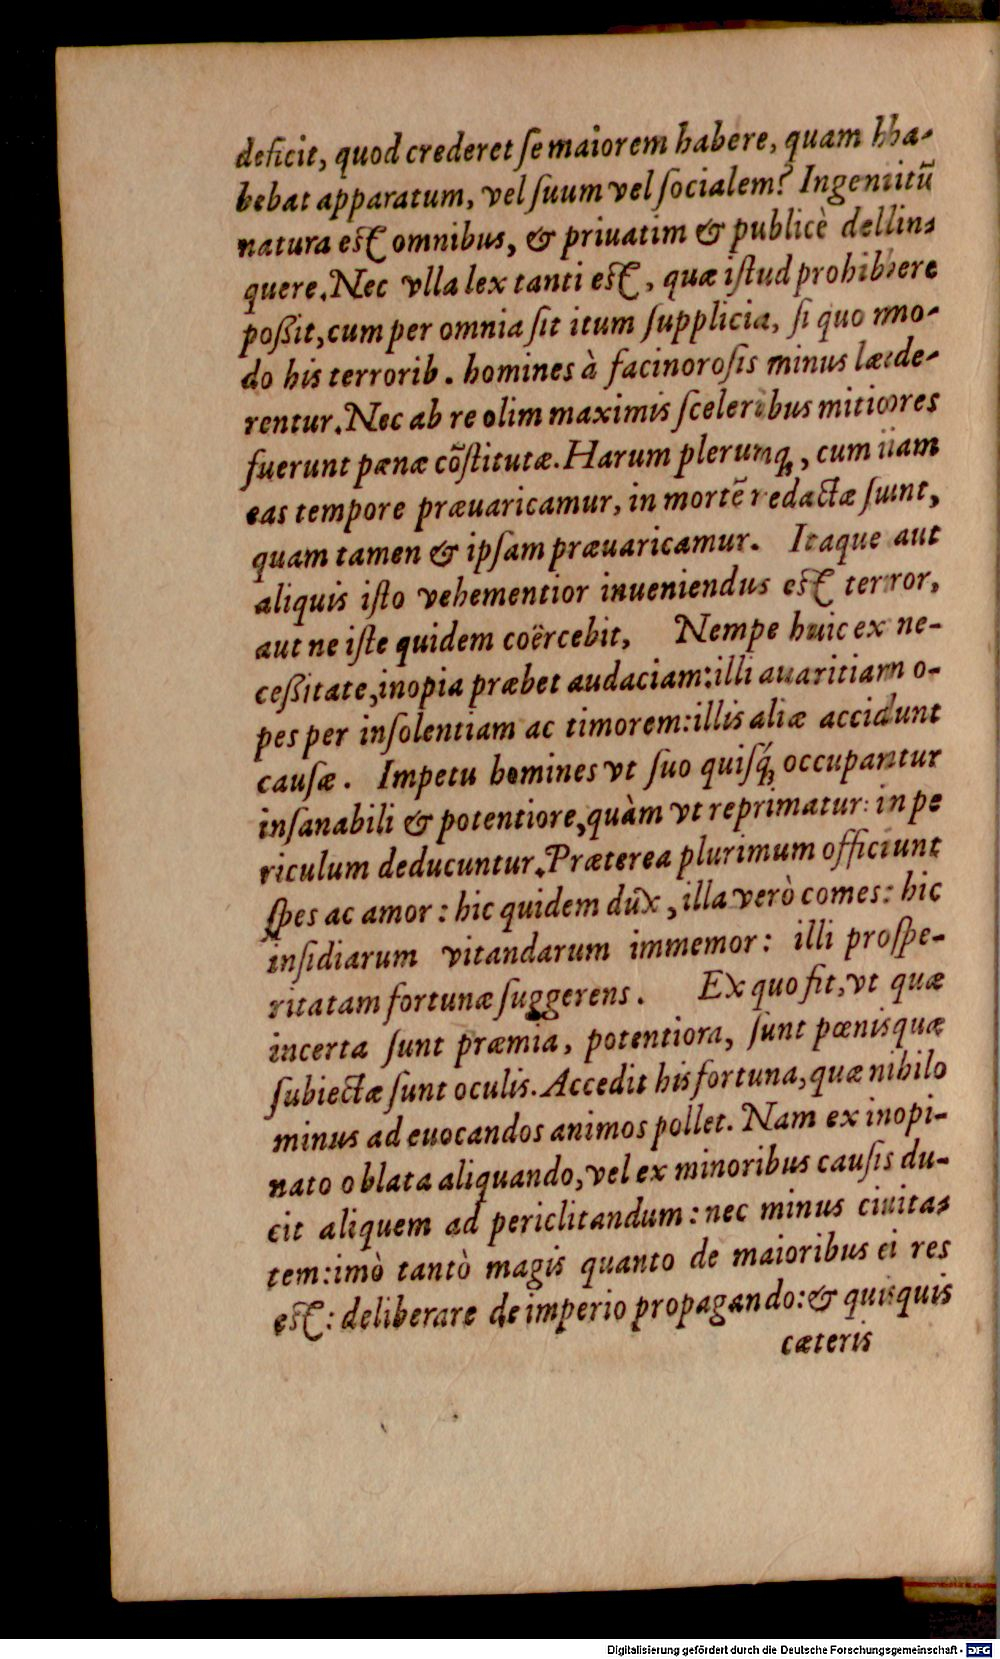 deficit, quod crederet ſe maiorem habere, quam hha-
bebat apparatum, vel ſuum vel ſocialem? Ingeniitũ
natura eſt omnibus, & priuatim & publicè dellin-
quere. Nec vlla lex tanti eſt, quæ iſtud prohibbere
poßit, cum per omnia ſit itum ſupplicia, ſi quo mmo-
do his terrorib. homines à facinoroſis minus lææde-
rentur. Nec ab re olim maximis ſceleribus mitioores
fuerunt pænæ cõſtitutæ. Harum plerunq, cum iiam
eas tempore præuaricamur, in mortẽ redactæ ſuunt,
quam tamen & ipſam præuaricamur. Itaque aut
aliquis iſto vehementior inueniendus eſt terror,
aut ne iſte quidem coërcebit, Nempe huic ex ne-
ceßitate, inopia præbet audaciam: illi auaritiam o-
pes per inſolentiam ac timorem: illis aliæ accidunt
cauſæ. Impetu homines vt ſuo quiſq́; occupantur
inſanabili & potentiore, quàm vt reprimatur: in pe
riculum deducuntur. Præterea plurimum officiunt
ſpes ac amor: hic quidem dũx, illa verò comes: hic
inſidiarum vitandarum immemor: illi proſpe-
ritatam fortunæ ſuggerens. Ex quo fit, vt quæ
incerta ſunt præmia, potentiora, ſunt pœnis quæ
ſubiectæ ſunt oculis. Accedit his fortuna, quæ nihilo
minus ad euocandos animos pollet. Nam ex inopi-
nato oblata aliquando, vel ex minoribus cauſis du-
cit aliquem ad periclitandum: nec minus ciuita-
tem: imò tantò magis quanto de maioribus ei res
eſt: deliberare de imperio propagando: & quisquis
cæteris
Digitalisierung gefördert durch die Deutsche Forschungsgemeinschaft - DFG